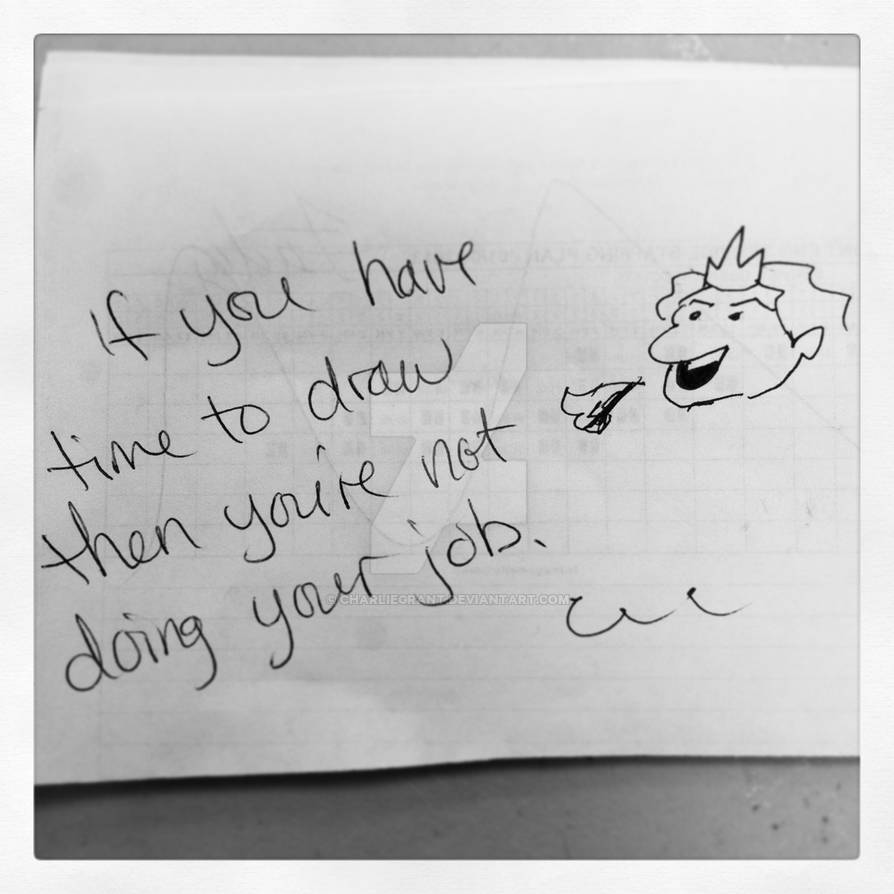 If you have
time to draw
then you're not
doing your job.
© CHARLIEGRANT.DEVIANTART.COM